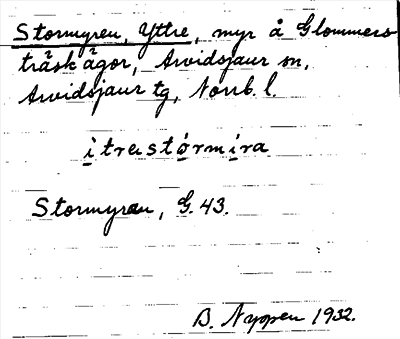 Stormyren, Yttre, myr å Glommers
träsk ägor, Arvidsjaur sn,
Arvidsjaur tg, Norrb. l.
itrastórmira
Stormyran, G. 43.
B. Nyppen 1932.